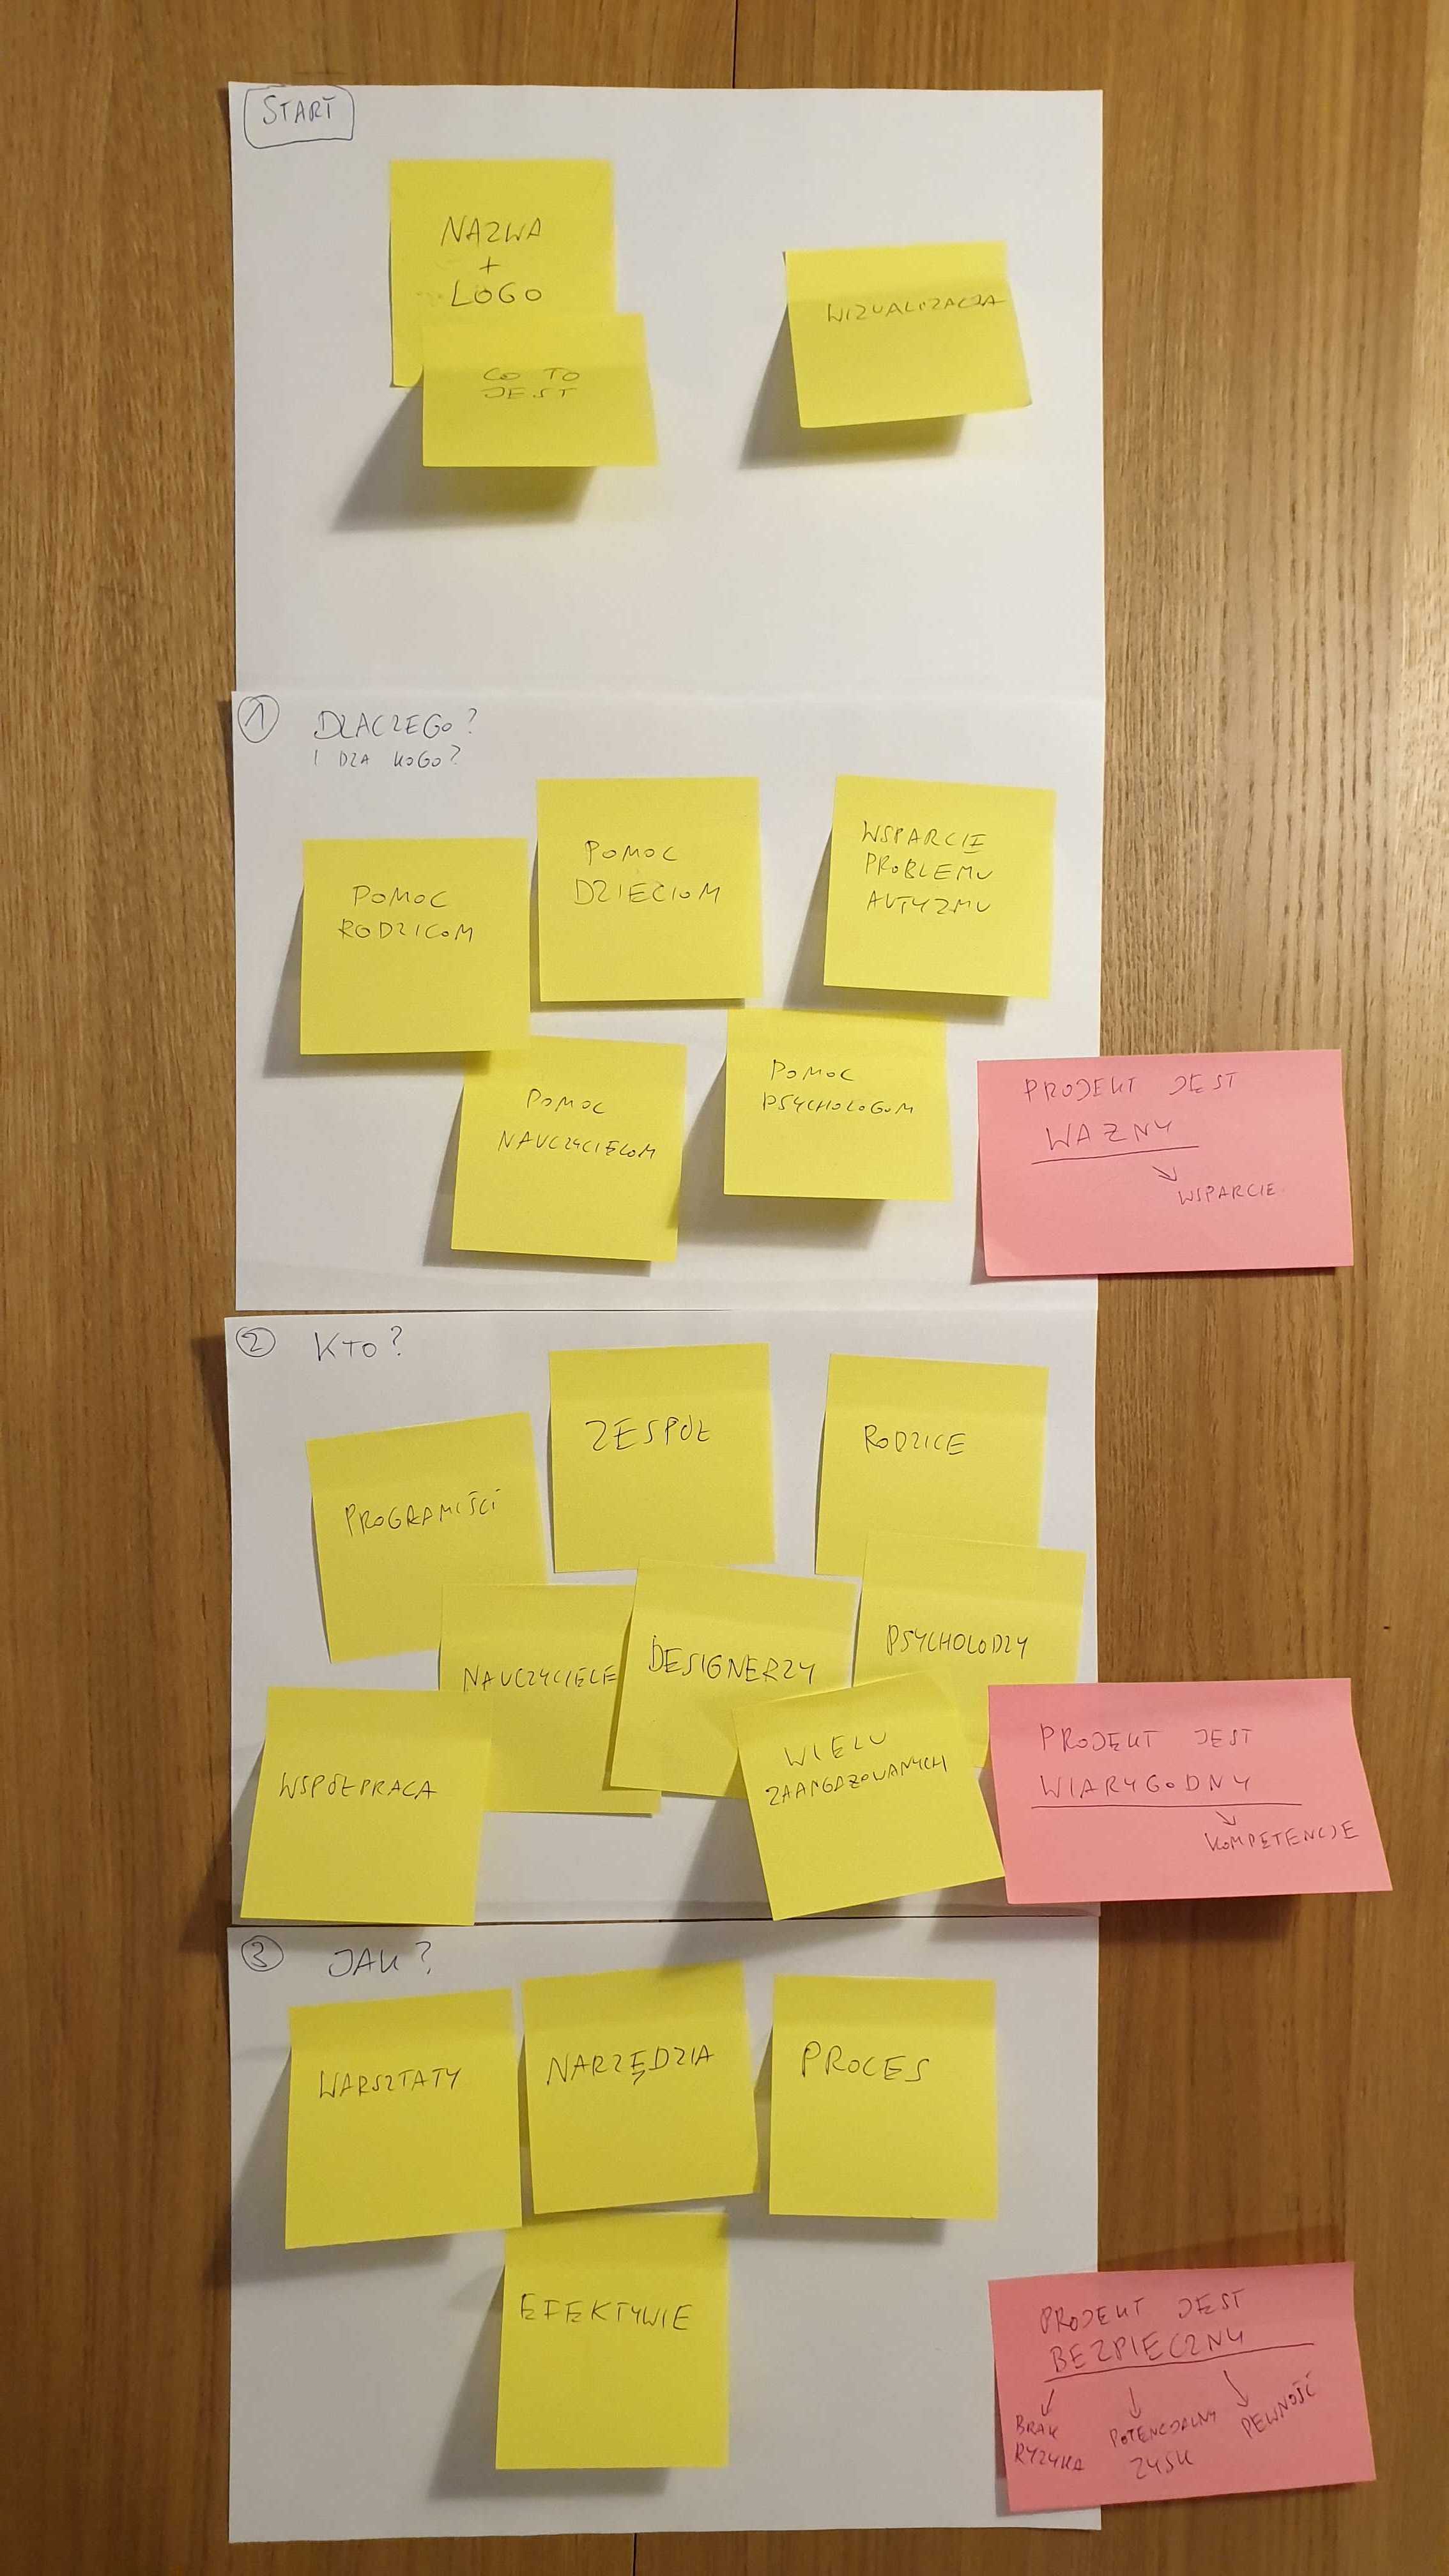 START
NAZWA
+
LOGO
CO TO
JEST
WIZUALIZACJA
1 DLACZEGO?
I DLA KOGO?
POMOC
RODZICOM
POMOC
DZIECIOM
WSPARCIE
PROBLEMU
AUTYZMU
POMOC
NAUCZYCIELOM
POMOC
PSYCHOLOGOM
PROJEKT JEST
WAŻNY
↘
WSPARCIE
2 KTO?
PROGRAMIŚCI
ZESPÓŁ
RODZICE
NAUCZYCIELE
DESIGNERZY
PSYCHOLODZY
WSPÓŁPRACA
WIELU
ZAANGAŻOWANYCH
PROJEKT JEST
WIARYGODNY
↘
KOMPETENCJE
3 JAK?
WARSZTATY
NARZĘDZIA
PROCES
EFEKTYWIE
PROJEKT JEST
BEZPIECZNY
↙ ↓ ↘
BRAK
RYZYKA
POTENCJALNY
ZYSK
PEWNOŚĆ